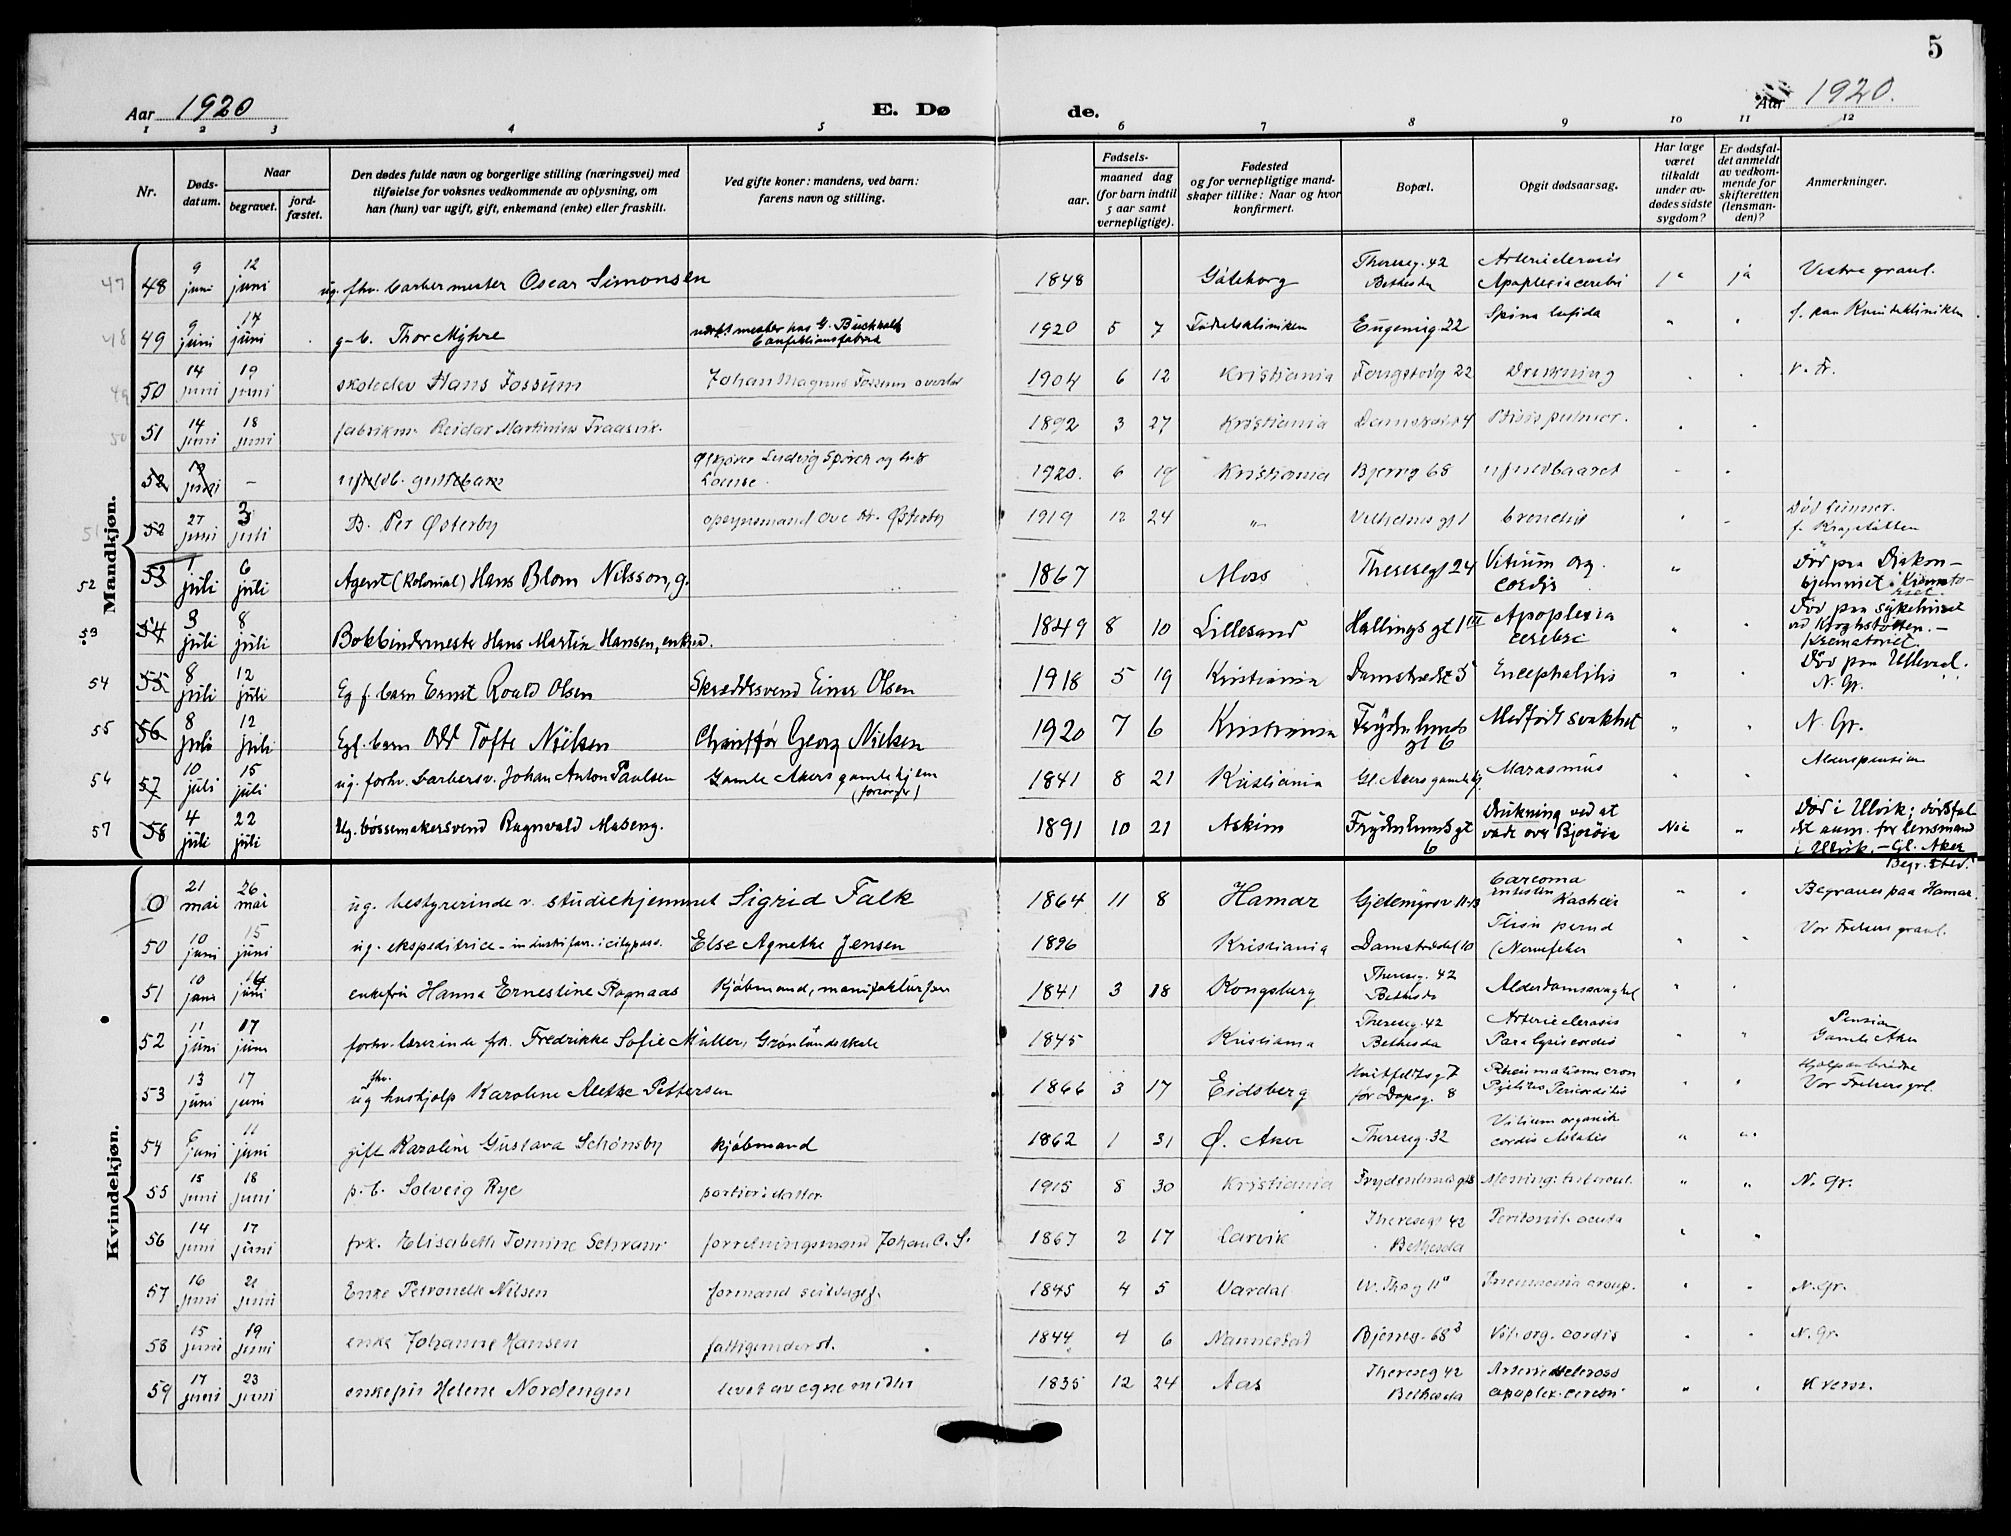 5
Aar 1920
E. Dø de.
Aar 1920.
1 2 3 4 5 6 7 8 9 10 11 12
Nr.
Døds-
datum.
Naar
begravet.
jord-
fæstet.
Den dødes fulde navn og borgerlige stilling (næringsvei) med
tilføielse for voksnes vedkommende av oplysning, om
han (hun) var ugift, gift, enkemand (enke) eller fraskilt.
Ved gifte koner: mandens, ved barn:
farens navn og stilling.
Fødsels-
aar.
maaned dag
(for barn indtil
5 aar samt
vernepligtige).
Fødested
og for vernepligtige mand-
skaper tillike: Naar og hvor
konfirmert.
Bopæl.
Opgit dødsaarsag.
Har læge
været
tilkaldt
under av-
dødes sidste
sygdom?
Er dødsfal-
det anmeldt
av vedkom-
mende for
skifteretten
(lensman-
den)?
Anmerkninger.
Mandkjøn.
47 48 9 juni 12 juni ug. fhv. barbermester Oscar Simonsen 1848 Göteborg Thereseg. 42 Bethesda Apoplexia cerebri ja ja Vestre gravl.
48 49 9 juni 17 juni g-b. Thor Myhre 1920 5 7 Fødselskliniken Eugenieg. 22 Spina bifida " " f. paa Kvindekliniken
49 50 14 juni 19 juni skoleelev Hans Fossum Johan Magnus Fossum 1904 6 12 Kristiania 22 Drukning " " V. Fr.
50 51 14 juni 18 juni fabrikm. Reidar Martinius 1892 3 27 Kristiania pulmon. " "
52 juni - guttebarn Ludvig Spørck og 1920. 6 19 Kristiania Bjerreg 68 " "
Louise.
51 52 27 juni 3 juli B. Per Østerby opsynsmand Ove Kr. Østerby 1919 12 24 " Vilhelmsgt 1 bronchit " "
52 53 1 juli 6 juli Agent (kolonial) Hans Blom Nilsson, g. 1867 Moss Theresegt 24 Vitium org. cordis " Död paa Diakon-
hjemmet.
53 54 3 juli 8 juli Bokbindermester Hans Martin Hansen, enkem. 1849 8 10 Lillesand Hallings gt 1 III Apoplexia cerebri " " Död paa sykehuset
ved Kroghstøtten. -
Krematoriet.
54 55 8 juli 12 juli Eg f. barn Ernst Roald Olsen Skræddersvend Einar Olsen 1918 5 19 Kristiania Damstrædet 5 Encephalitis " " Död paa Ullevaal.
N. Gr.
55 56 8 juli 12 juli Egf. barn Odd Tofte Nielsen Chauffør Georg Nielsen 1920 7 6 Kristiania Frydenlunds gt 6 Medfödt svakhet " " N. Gr.
57 10 juli 15 juli ug. forhv. barbersv. Johan Anton Paulsen Gamle Akers gamlehjem
(forsorget) 1841 8 21 Kristiania Gl. Akers gamlehj. Marasmus " " Alderspension
57 58 4 juli 22 juli Ug. bøssemakersvend Ragnvald Moseng. 1891 10 21 Askim Frydenlunds gt 6 Drukning ved at
vade over Bjoröia Nei " Död i Ulvik; dödsfal-
det anm. for lensmand
i Ulvik. - Gl. Aker
Begr.sted.
Kvindekjøn.
21 mai 26 mai ug. bestyrerinde v. studiehjemmet Sigrid Falk 1864 11 8 Hamar Carcoma intestin Kachexi " " Begraves paa Hamar.
50 10 juni 15 juni ug. ekspeditrice - industrifor. i citypass. Else Agnethe Jensen 1896 Kristiania Damstrædet 10 " " Vor Frelsers gravl.
51 10 juni 16 juni enkefru Hanna Ernestine Ragnaas Kjøbmand, manifakturforr 1841 3 18 Kongsberg Thereseg. 42 Bethesda Alderdomssvaghed " "
52 11 juni 17 juni forhv. lærerinde frk. Fredrikke Sofie Müller, Grønlands skole 1845 Kristiania Thereseg. 42 Bethesda Paralysis cordis " " Pension
Gamle Aker
53 13 juni 17 juni fhv.
ug hushjelp Karoline Alethe Pettersen 1866 3 17 Eidsberg Huitfeldtsg 7
før Dopsg. 8 Pericorditis " " Vor Frelsers grl.
54 juni 11 juni gift Karoline Gustava Schönsby Kjøbmand 1862 1 31 Ø. Aker Thereseg. 32 Vitium organik
cordis " "
55 15 juni 18 juni p.b. Solveig Rye portier: datter 1915 8 30 Kristiania Mening: tubercul. " " N. Gr.
56 14 juni 17 juni frk. Elisabeth Tomine Schram forretningsmand Johan C. S. 1867 2 17 Larvik Theresegt 42
Bethesda Peritonit. acuta " "
57 16 juni 21 juni Enke Petronelle Nilsen formand 1845 4 5 Vardal W. Thsg 11 Pneumonia croup. " " N. Gr.
58 15 juni 19 juni enke Johanne Hansen fattigunderst. 1844 4 6 Bjerreg. 68 Vit. org. cordis " " N. Gr.
59 17 juni 23 juni enkefru Helene Nordengen levet av egne midler 1835 12 24 Aas Thereseg 42
Bethesda apoplex. cerebri " "